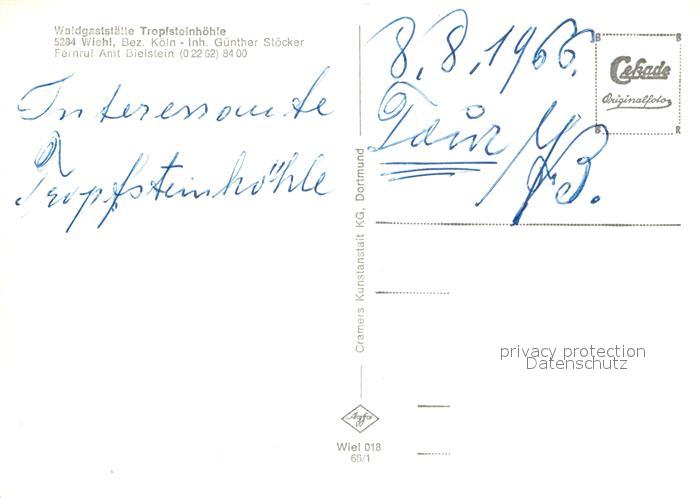 Waldgaststätte Tropfsteinhöhle
5284 Wiehl, Bez. Köln - Inh. Günther Stöcker
Fernruf Amt Bielstein (0 22 62) 84 00
Interessante
Tropfsteinhöhle
8.8.1966.
Tour
B R
Cekade
Originalfoto
B R
Cramers Kunstanstalt KG, Dortmund
privacy protection
Datenschutz
Agfa
Wiel 018
66/1